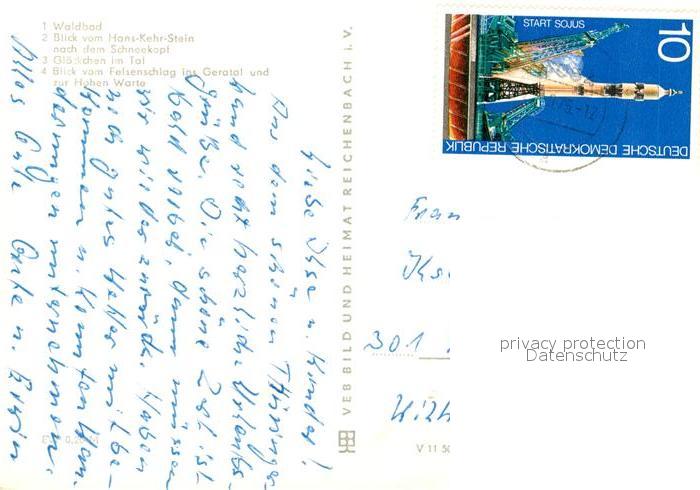 1 Waldbad
2 Blick vom Hans-Kehr-Stein
nach dem Schneekopf
3 Glöckchen im Tal
4 Blick vom Felsenschlag ins Geratal und
zur Hohen Warte
VEB BILD UND HEIMAT REICHENBACH i. V.
V 11 50
START SOJUS
10
DEUTSCHE DEMOKRATISCHE REPUBLIK
Liebe Ilse u. Kinder!
Aus dem schönen Thüringer
Land recht herzliche Urlaubs-
grüße. Die schöne Zeit ist
bald vorbei, dann müssen
wir wieder zurück. Haben
auch gutes Wetter mitbe-
kommen u. konnten
unternehmen.
Alles Gute u. Erwin
Frau
Ilse
301
privacy protection
Datenschutz